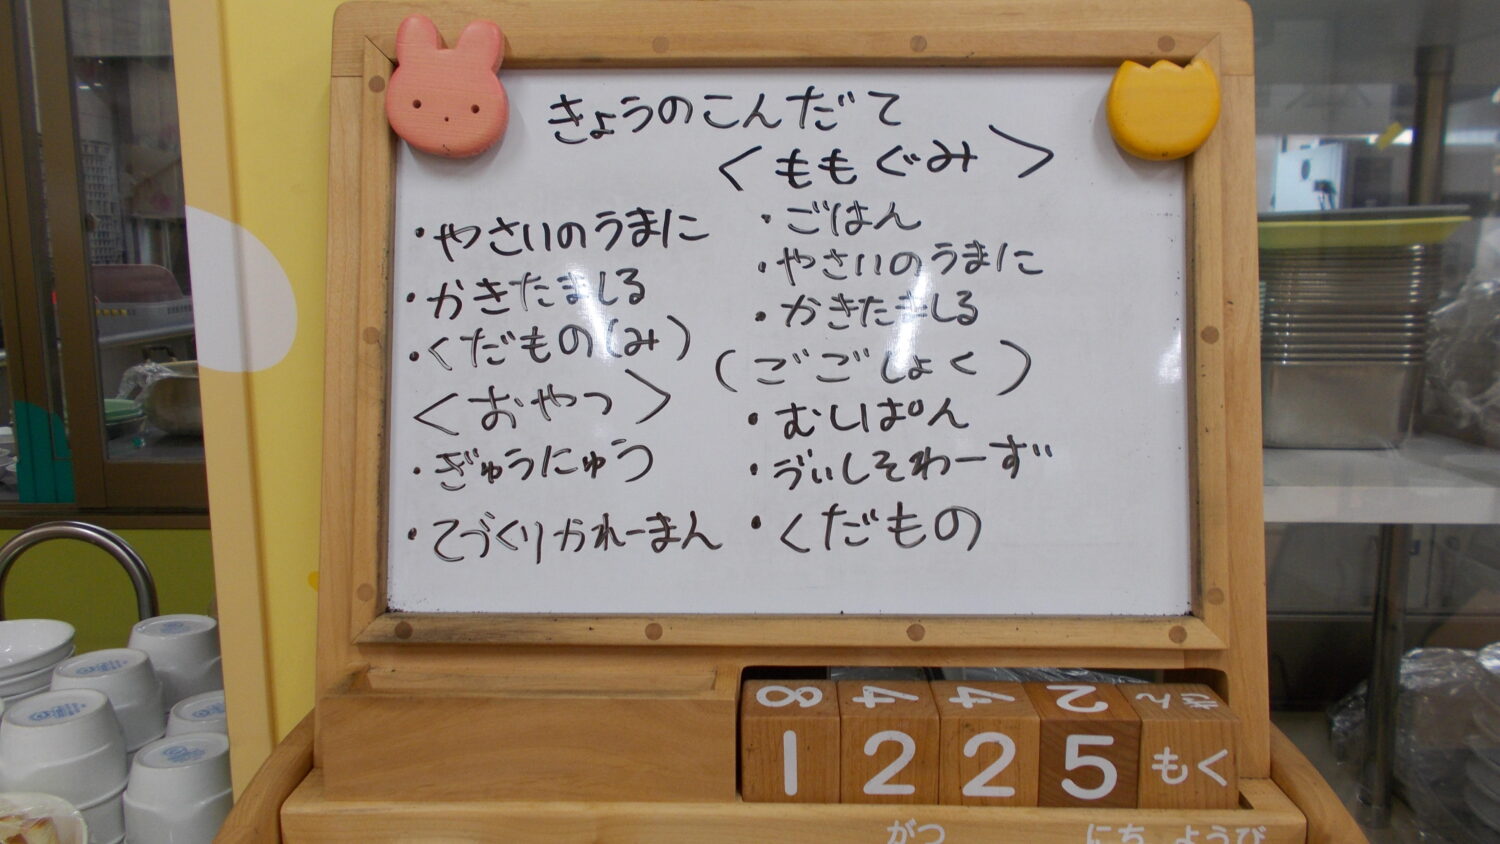 きょうのこんだて
・やさいのうまに
・かきたましる
・くだもの(み)
<おやつ>
・ぎゅうにゅう
・てづくりかれーまん
<ももぐみ>
・ごはん
・やさいのうまに
・かきたましる
(ごごしょく)
・むしぱん
・ゔぃしそわーず
・くだもの
8 4 4 2 きん
1 2 2 5 もく
がつ にち ようび